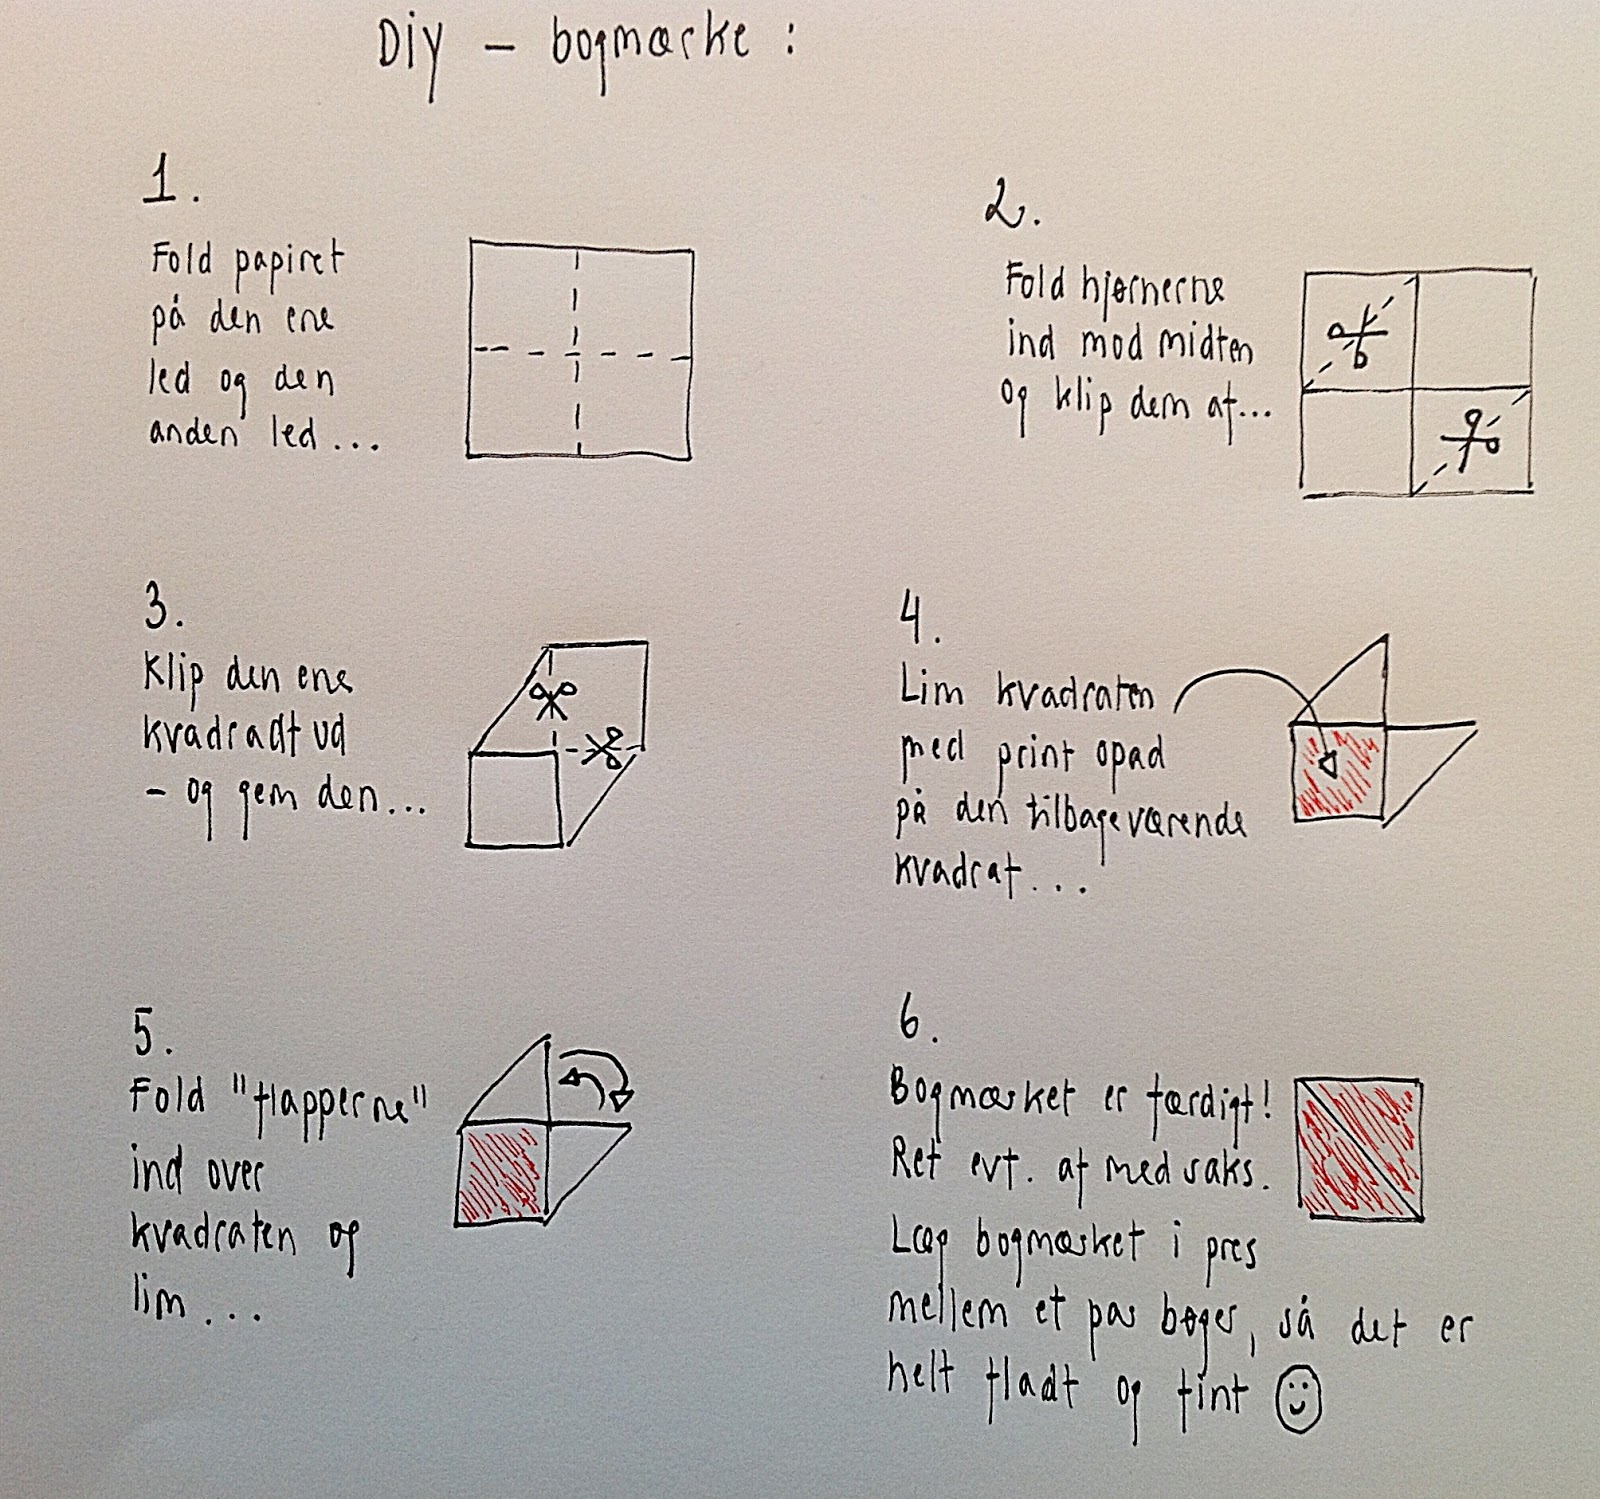 Diy - bogmærke :
1.
Fold papiret
på den ene
led og den
anden led...
2.
Fold hjørnerne
ind mod midten
og klip dem af...
3.
Klip den ene
kvadradt ud
- og gem den...
4.
Lim kvadraten
med print opad
på den tilbageværende
kvadrat...
5.
Fold "flapperne"
ind over
kvadraten og
lim...
6.
Bogmærket er færdigt!
Ret evt. af med saks.
Læg bogmærket i pres
mellem et par bøger, så det er
helt fladt og fint